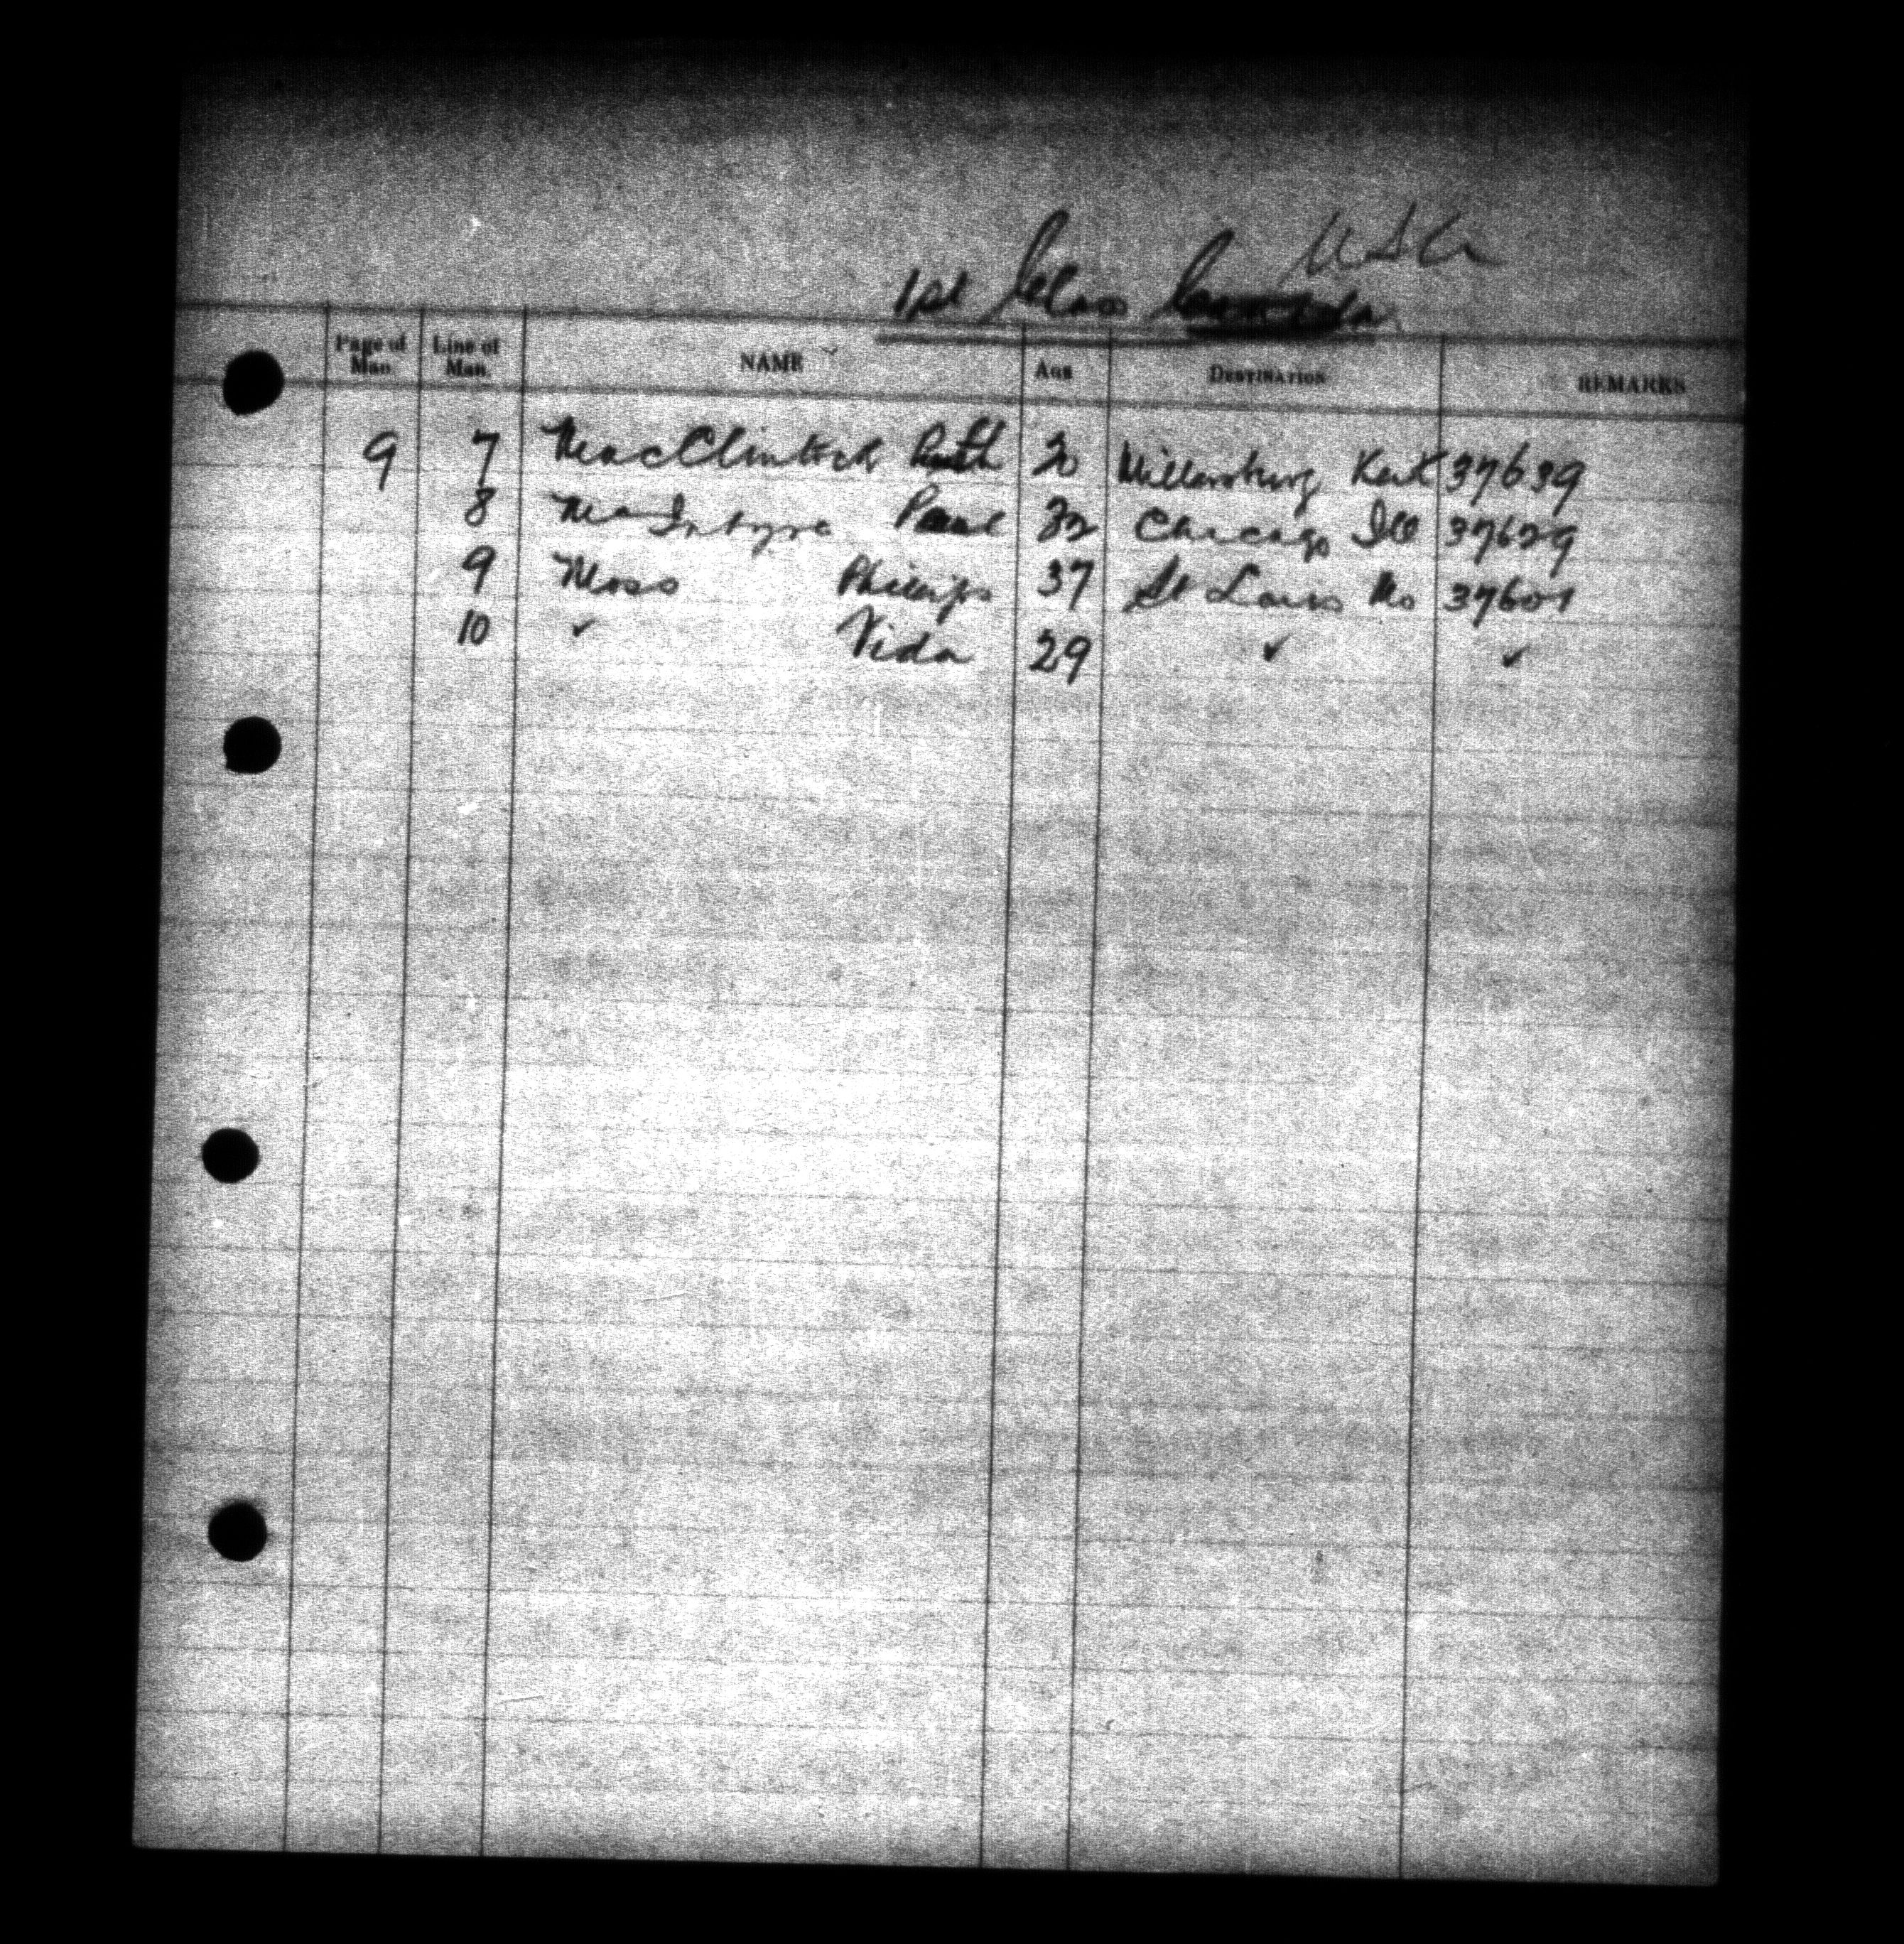 USA
1st Class Canada
Page of Man. Line of Man. NAME AGE DESTINATION REMARKS
9 7 MacClintock Ruth 20 Millersburg Kent 37639
8 MacIntyre Paul 32 Chicago Ill 37629
9 Moss Phillips 37 St Louis Mo 37601
10 ✓ Vida 29 ✓ ✓